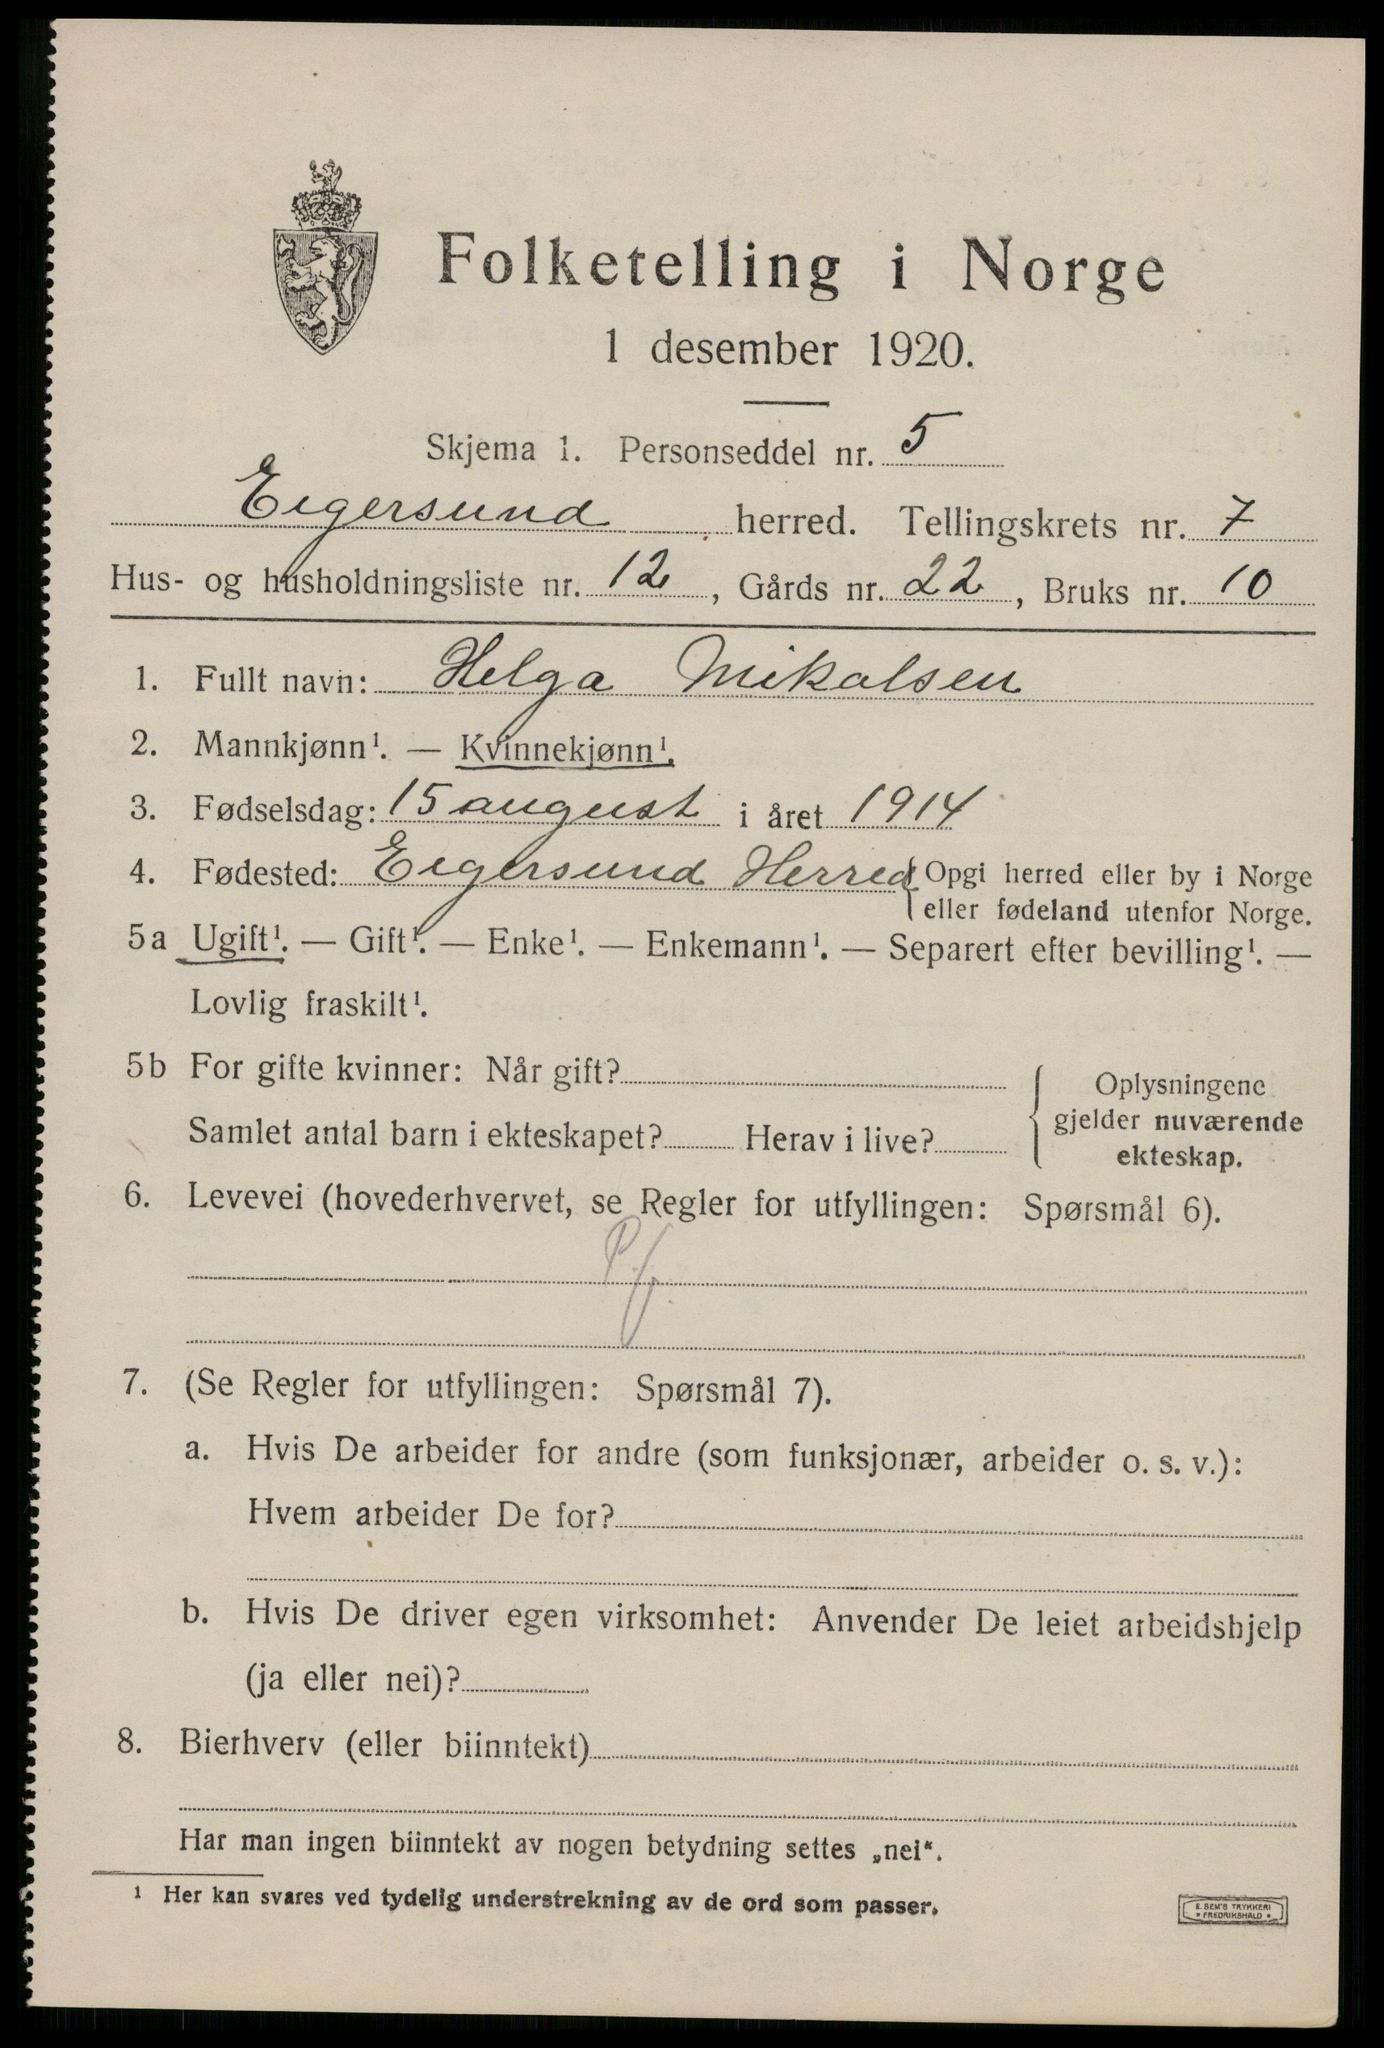 Folketelling i Norge
1 desember 1920.
Skjema 1. Personseddel nr. 5
Eigersund herred. Tellingskrets nr. 7
Hus- og husholdningsliste nr. 12, Gårds nr. 22, Bruks nr. 10
1. Fullt navn: Helga Mikalsen
2. Mannkjønn¹. — Kvinnekjønn¹.
3. Fødselsdag: 15 august i året 1914
4. Fødested: Eigersund Herred { Opgi herred eller by i Norge
eller fødeland utenfor Norge.
5a Ugift¹. — Gift¹. — Enke¹. — Enkemann¹. — Separert efter bevilling¹. —
Lovlig fraskilt¹.
5b For gifte kvinner: Når gift?
Samlet antal barn i ekteskapet? Herav i live?
Oplysningene
gjelder nuværende
ekteskap.
6. Levevei (hovederhvervet, se Regler for utfyllingen: Spørsmål 6).
P.f.
7. (Se Regler for utfyllingen: Spørsmål 7).
a. Hvis De arbeider for andre (som funksjonær, arbeider o. s. v.):
Hvem arbeider De for?
b. Hvis De driver egen virksomhet: Anvender De leiet arbeidshjelp
(ja eller nei)?
8. Bierhverv (eller biinntekt)
Har man ingen biinntekt av nogen betydning settes „nei“.
¹ Her kan svares ved tydelig understrekning av de ord som passer.
E. SEM'S TRYKKERI
* FREDRIKSHALD *